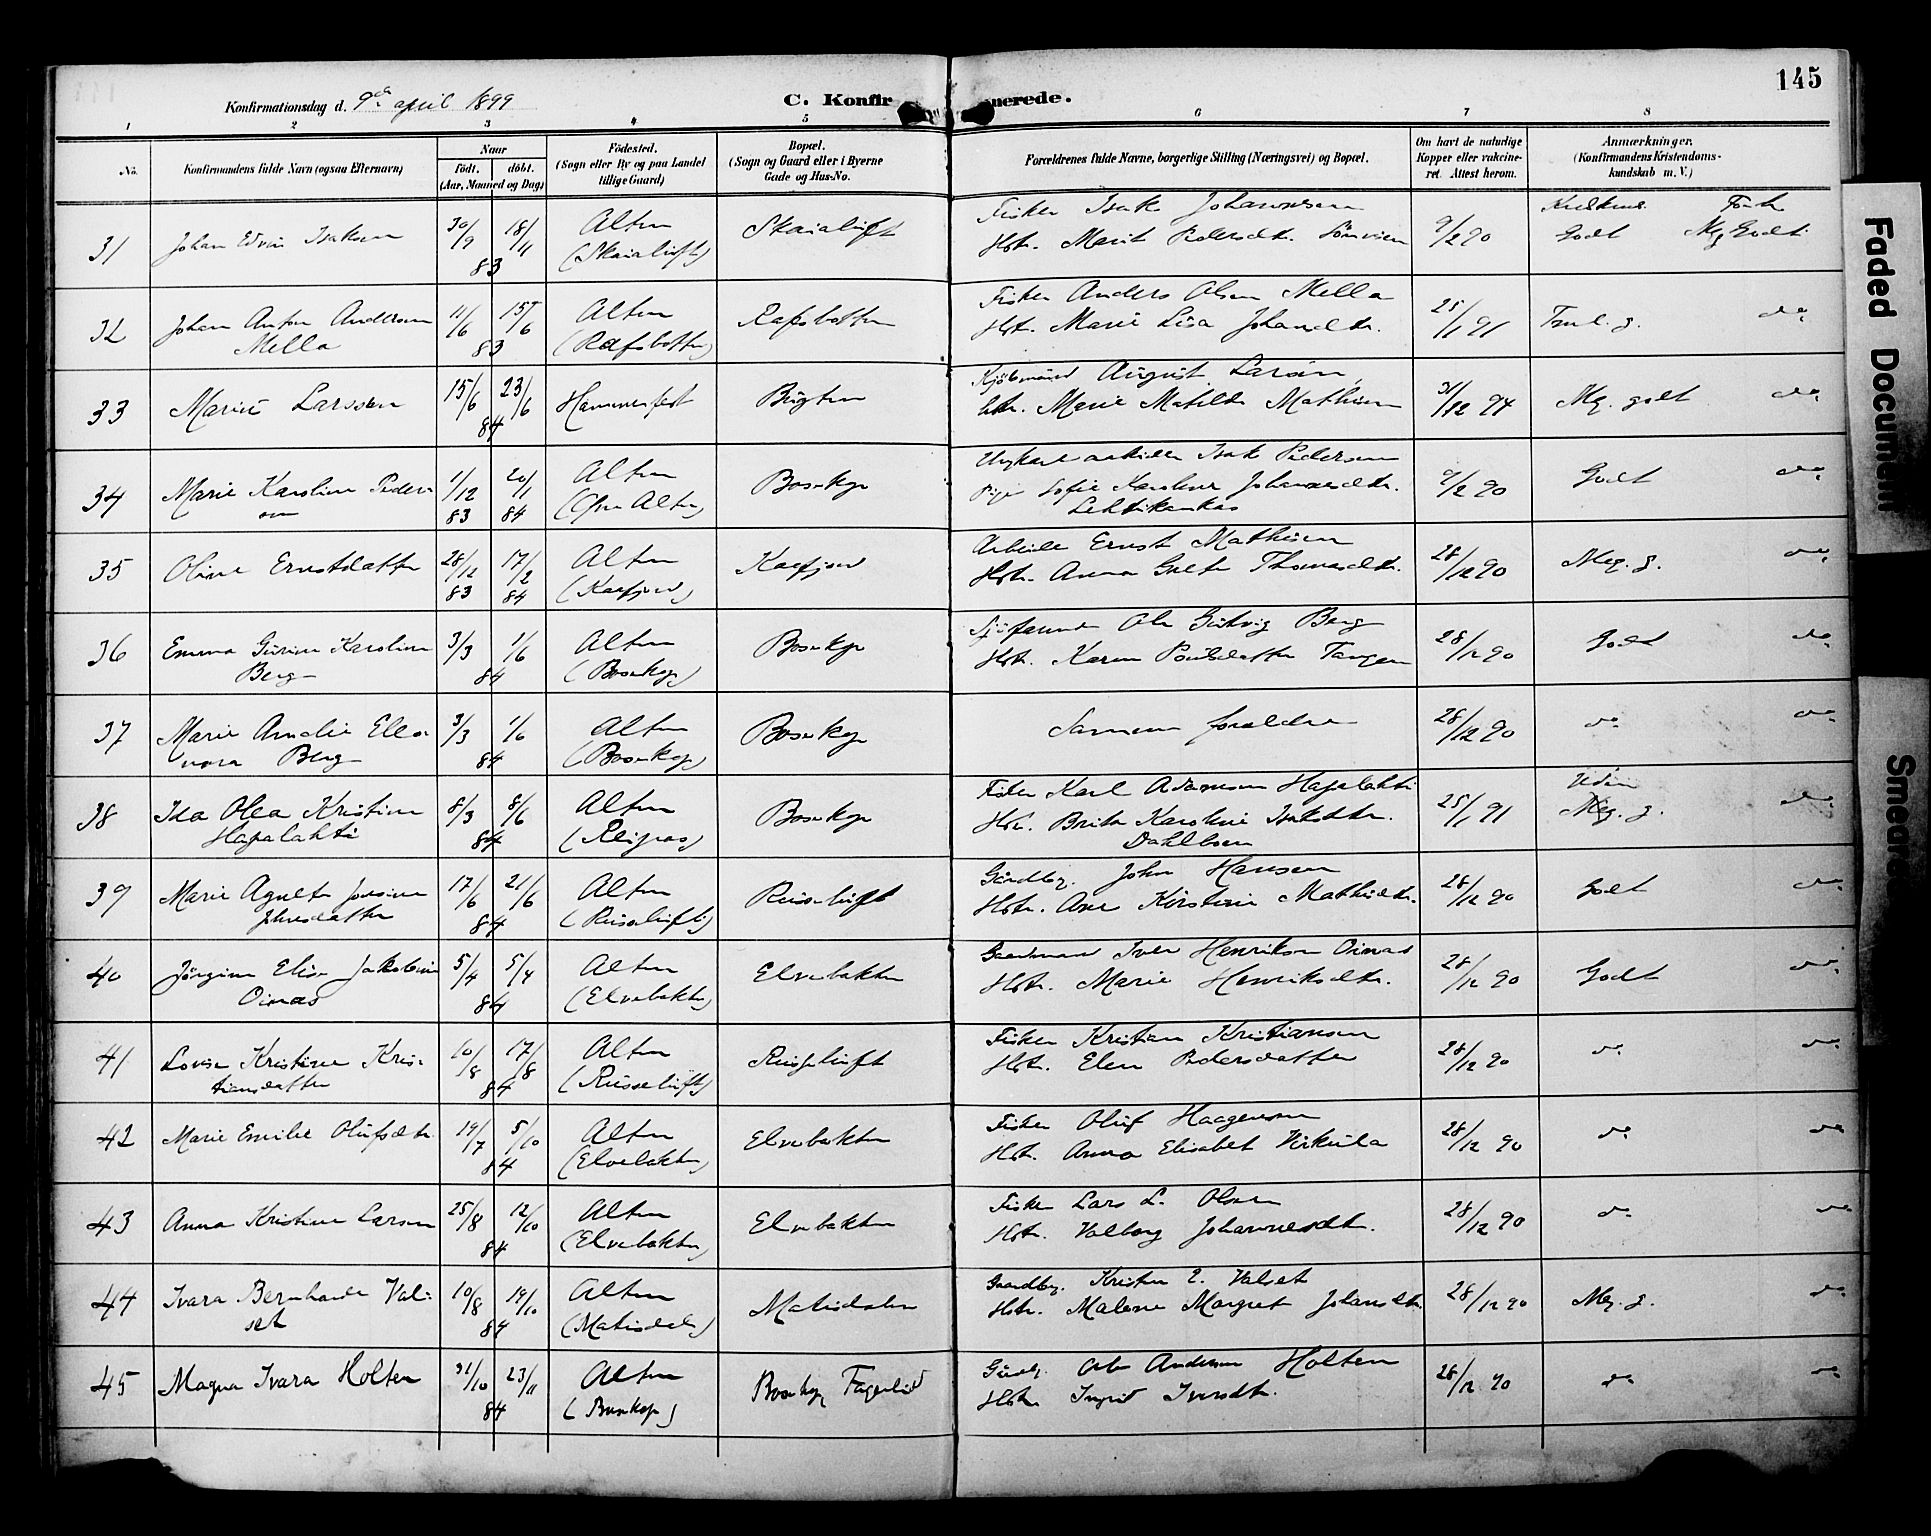 145
Konfirmationsdag d. 9de april 1899
C. Konfir merede.
1 2 3 4 5 6 7 8
No.
Konfirmandens fulde Navn (ogsaa Efternavn)
Naar
födt. döbt.
(Aar, Maaned og Dag)
Födested.
(Sogn eller By og paa Landet
tillige Gaard)
Bopæl.
(Sogn og Gaard eller i Byerne
Gade og Hus-No.
Forældrenes fulde Navne, borgerlige Stilling (Næringsvei) og Bopæl.
Om havt de naturlige
Kopper eller vakcine-
ret. Attest herom.
Anmærkninger.
(Konfirmandens Kristendoms-
kundskab m. V.)
31 Johan Edvin Isaksen 30/9 18/11 83 Alten (Skaialuft) Skaialuft Fisker Isak Johannesen
Hst. Marit Pedersdtr. 9/2 90 Godt Meg Godt
32 Johan Anton Andersen Mella 11/6 15/6 83 Alten (Rafsbotten) Rafsbotten Fisker Anders Olsen Mella
Hst. Marie Lisa Johansdtr. 25/1 91 do
33 Marie Larssen 15/6 23/6 84 Hammerfest Bugten Kjöbmand August Larsen
Hst. Marie Matilde Mathisen 31/12 94 Meg. godt do
34 Marie Karoline Peder-
sen 1/12 83 20/1 84 Alten (Öfre Alten) Bosekop Ungkarl arbeider Isak Pedersen
Pige Sofie Karoline Johannesdtr.
Lehtikankas 9/2 90 Godt do
35 Oline Ernstdatter 28/12 83 17/2 84 Alten (Kaafjord) Kaafjord Arbeider Ernst Mathisen
Hst. Anna Greta Thomasdtr. 28/12 90 Meg. g. do
36 Emma Gurine Karoline
Berg 3/3 1/6 84 Alten (Bosekop) Bosekop Ole Berg
Hst. Karen Poulsdatter Tangen 28/12 90 Godt do
37 Marie Amalie Eleo-
nora Berg 3/3 1/6 84 Alten (Bosekop) Bosekop Samme forældre 28/12 90 do do
38 Ida Olea Kristine
Hapalahti 8/3 8/6 84 Alten Bosekop Fisker Karl Adamsen Hapalahti
Hst. Brita Karoline Isaksdtr.
Dahlbom 25/1 91 Meg. g. do
39 Marie Agnete Jonsine
Johnsdatter 17/6 21/6 84 Alten (Russeluft) Russeluft Gaardbr. John Hansen
Hst. Ane Kirstine Mathisdtr. 28/12 90 Godt do
40 Jörgine Elise Jakobine
Oinas 5/4 5/4 84 Alten (Elvebakken) Elvebakken Gaardmand Iver Henriksen Oinas
Hst. Marie Henriksdtr. 28/12 90 Godt do
41 Lovise Kristine Kris-
tiansdatter 10/8 17/8 84 Alten (Russeluft) Russeluft Fisker Kristian Kristiansen
Hst. Elen Pedersdatter 28/12 90 do do
42 Marie Emilie Olufsdtr. 19/7 5/10 84 Alten (Elvebakken) Elvebakken Fisker Oluf Haagensen
Hst. Anna Elisabet Kirkula 28/12 90 do do
43 Anna Kristine Larsen 25/8 12/10 84 Alten (Elvebakken) Elvebakken Fisker Lars L. Olsen
Hst. Valborg Johannesdtr. 28/12 90 do do
44 Ivara Bernharde Val-
set 10/8 19/10 84 Alten (Matisdalen) Matisdalen Gaardbr. Kristen E. Valset
Hst. Malene Margret Johansdtr. 28/12 90 Meg. g. do
45 Magna Ivara Holten 31/10 23/11 84 Alten (Bosekop) Bosekop Fagerlid Gaardbr. Ole Andersen Holten
Hst. Ingrid Iversdtr. 28/12 90 do do
Faded Document
Smeared